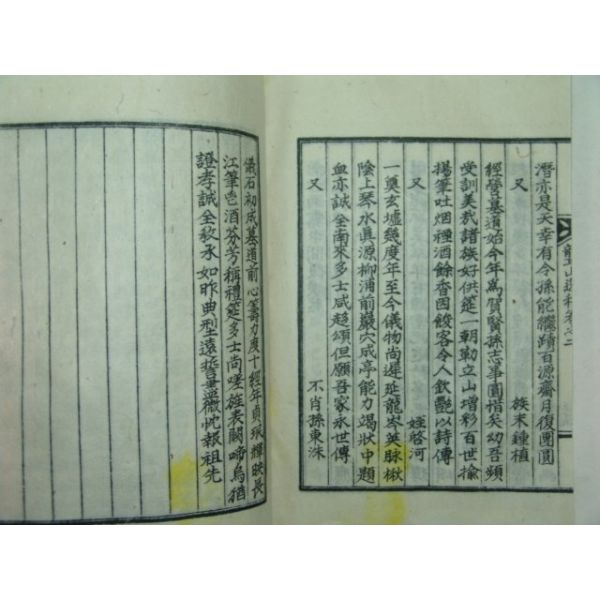 潛亦是天幸有令孫能繼蹟百源齋月復團圓
又 族末鍾植
經營墓道始今年爲賀賢孫志事圓惜矣幼吾頻
受訓美哉諸族好供筵一朝勒立山增彩百世揄
揚筆吐烟裡酒餘香因餕客令人欽艶以詩傳
又 姪啓河
一奠玄墟幾度年至今儀物尚遲延龍岑英脉楸
陰上琴水眞源柳浦前巖穴成亭能力竭狀中題
血亦誠全南來多士咸趍頌但願吾家永世傳
又 不肖孫東洙
儀石初成墓道前心籌力度十經年貞珉輝映長
江筆皀酒芬芳稱禮筵多士尚嗟旌表闕啼烏猶
證孝誠全敎承如昨典型遠誓畢微忱報祖先